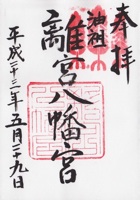 奉拝
油祖
離宮八幡宮
平成二十二年五月二十九日